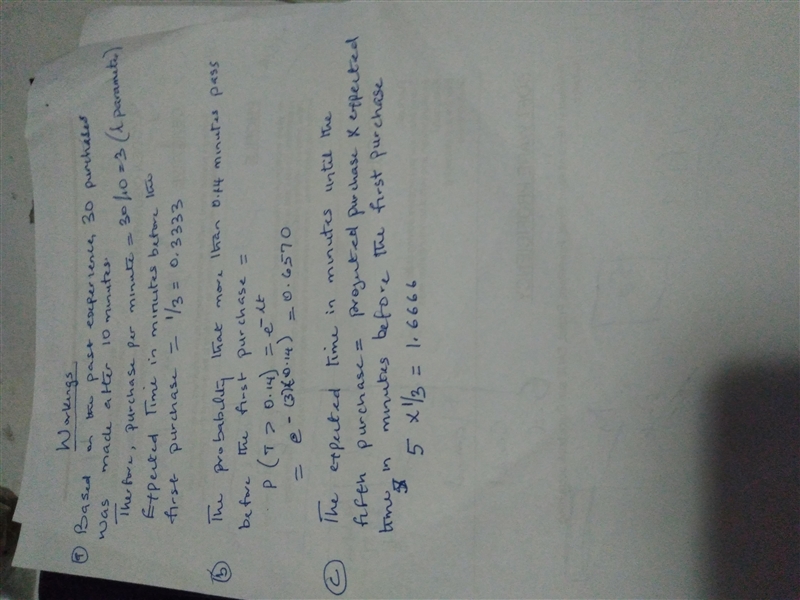 Workings
(a) Based on the past experience, 30 purchases
was made after 10 minutes.
Therefore, purchase per minute = 30/10 = 3 (λ parameter)
Expected Time in minutes before the
first purchase = 1/3 = 0.3333
(b) The probability that more than 0.14 minutes pass
before the first purchase =
P (T > 0.14) = e^-λt
= e^-(3)(0.14) = 0.6570
(c) The expected time in minutes until the
fifth purchase = projected purchase x expected
time in minutes before the first purchase
5 x 1/3 = 1.6666